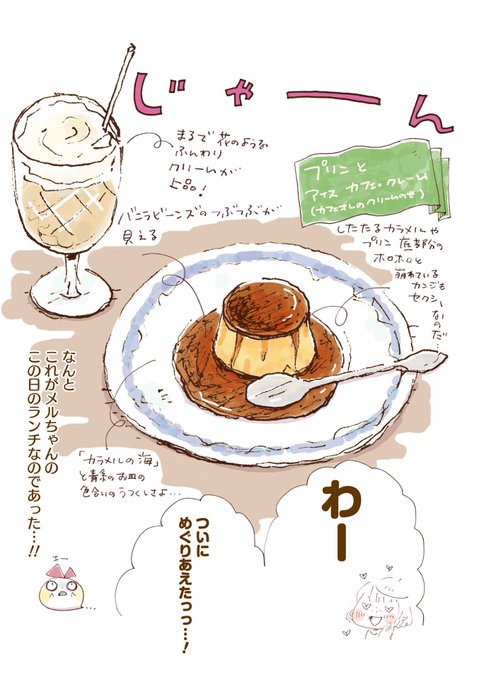 じゃーん
まるで花のような
ふんわり
クリームが
上品！
プリンと
アイス カフェ・クレーム
(カフェオレのクリームのせ)
バニラビーンズのつぶつぶが
見える
したたるカラメルや
プリン底部分の
ホロホロと
崩れている
カンジも
セクシー
なのだ…
なんと
これがメルちゃんの
この日のランチなのであった…!!
「カラメルの海」
と青系のお皿の
色合いのうつくしさよ…
わー
ついに
めぐりあえたっっ…！
エー